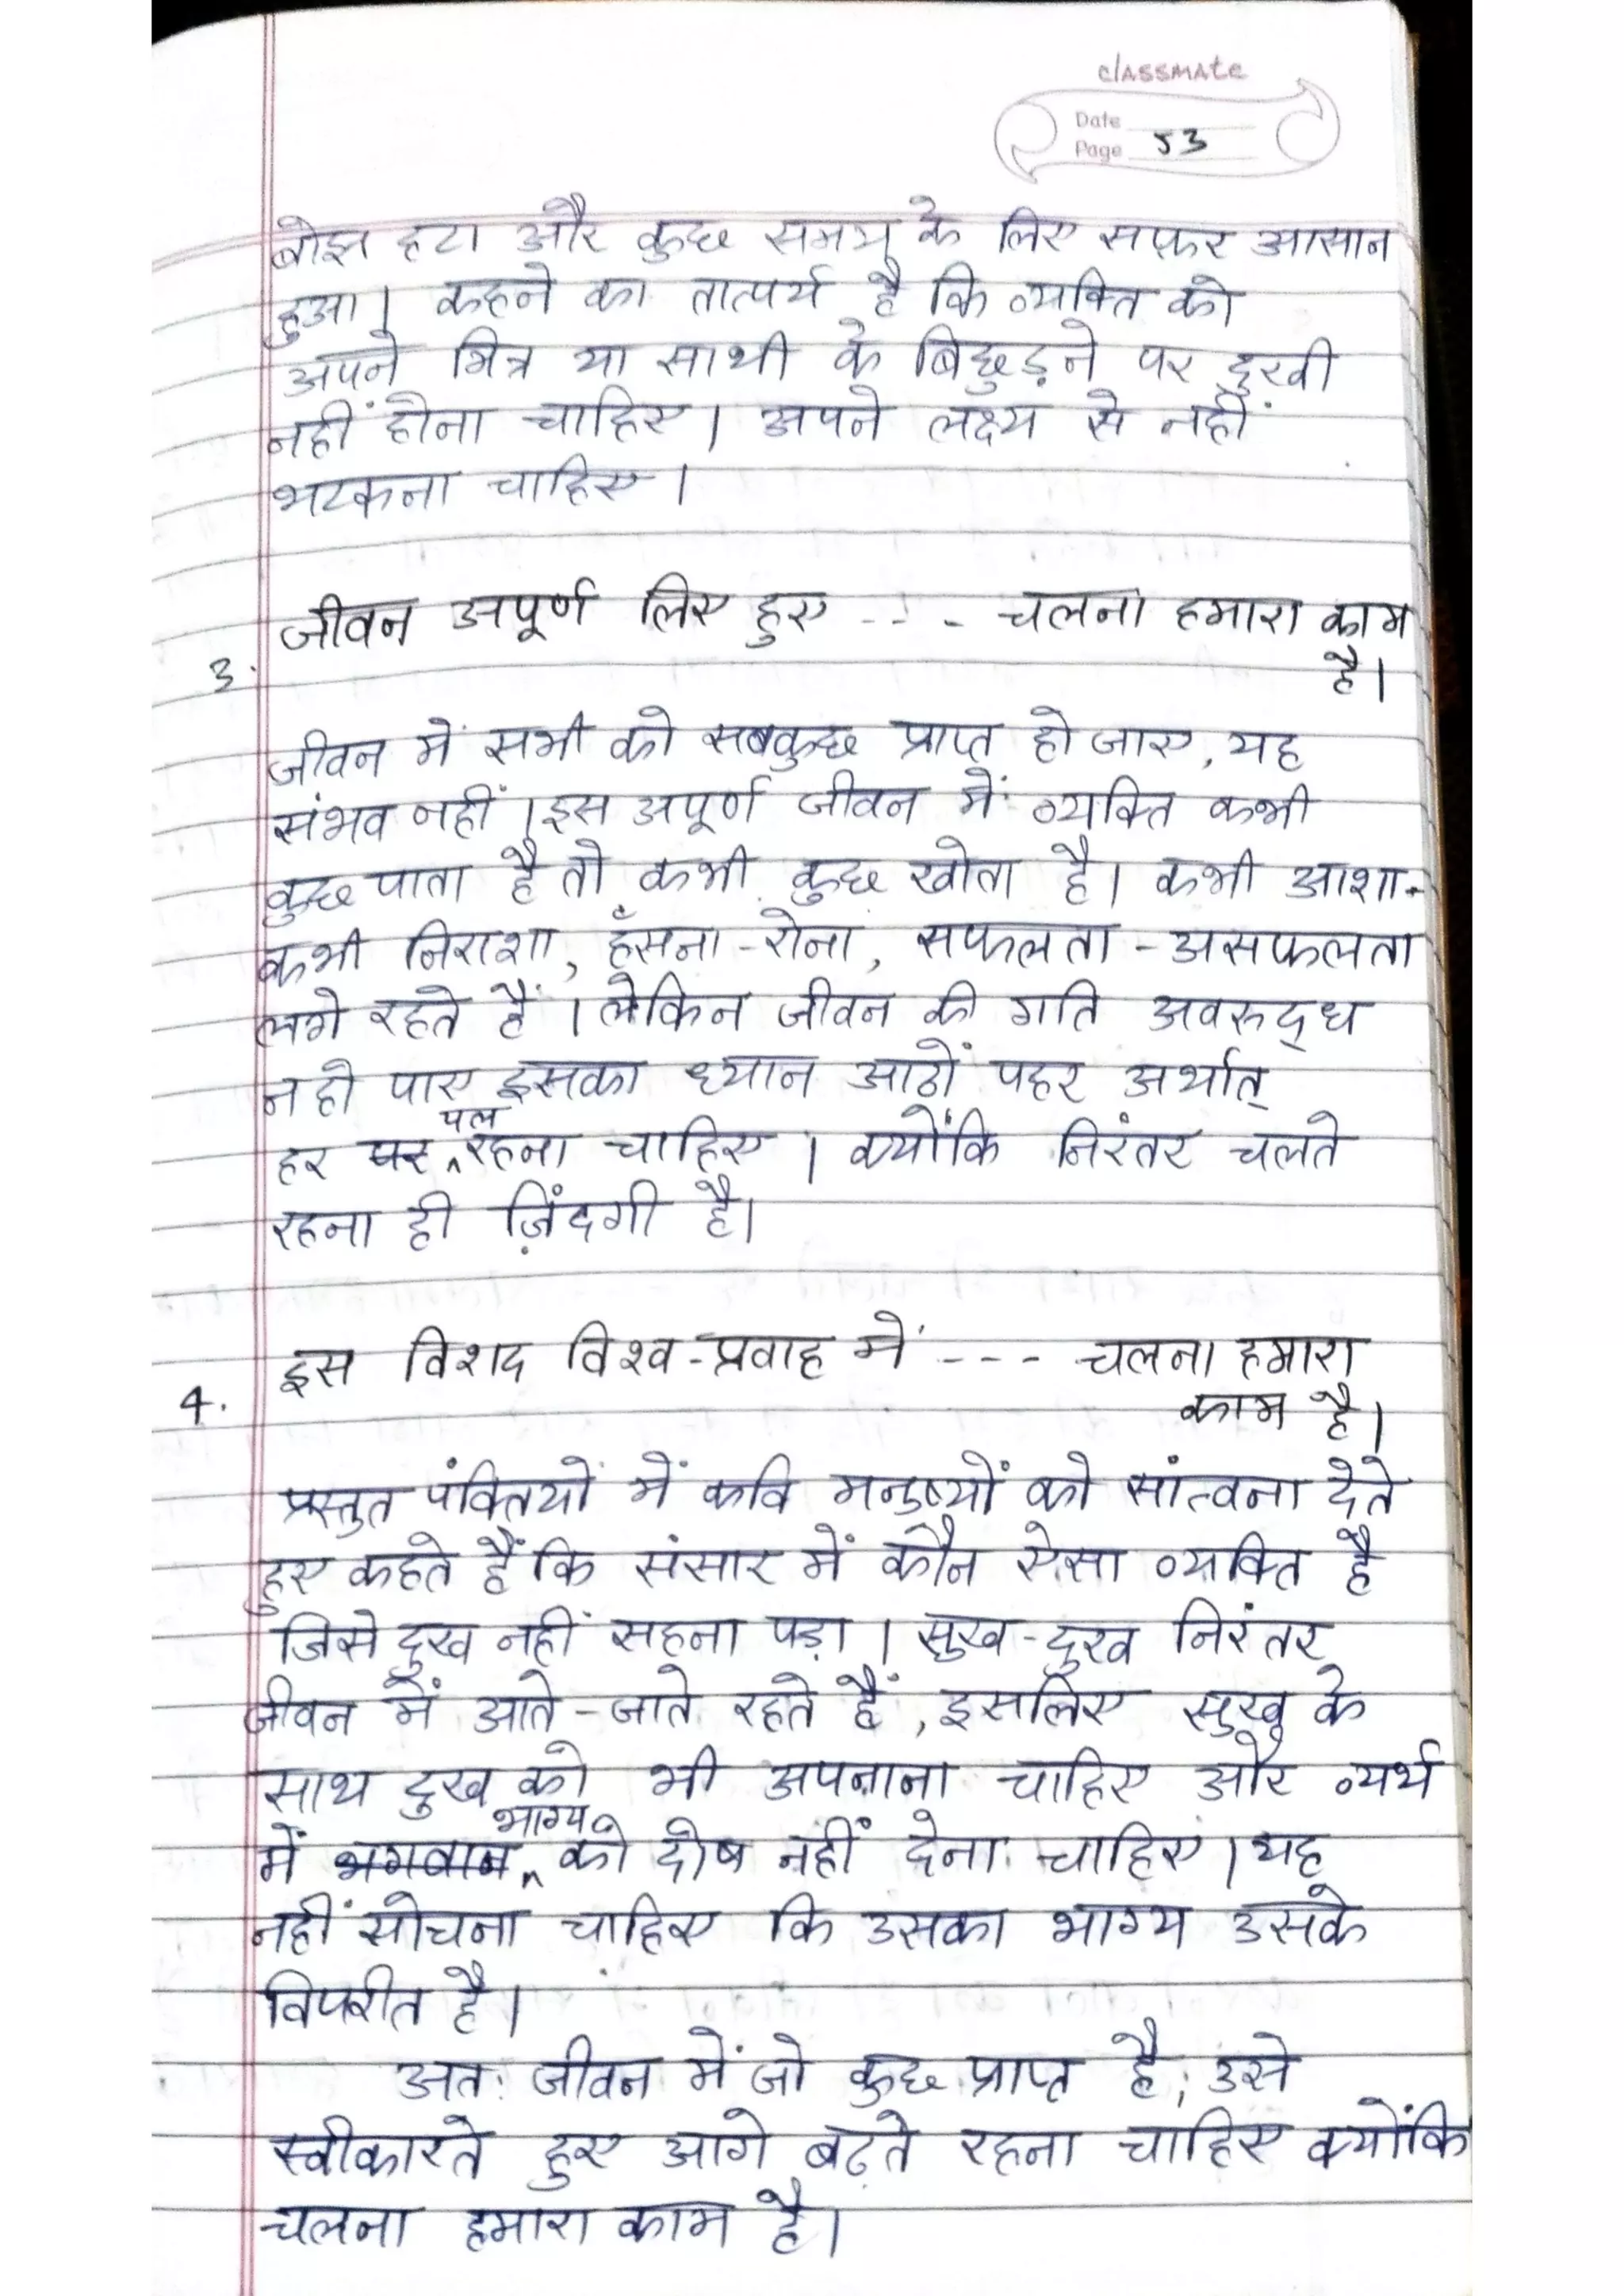 classmate
Date
Page 53
बोझ हटा और कुछ समय के लिए सफ़र आसान
हुआ। कहने का तात्पर्य है कि व्यक्ति को
अपने मित्र या साथी के बिछुड़ने पर दुखी
नहीं होना चाहिए। अपने लक्ष्य से नहीं
भटकना चाहिए।
जीवन अपूर्ण लिए हुए --- चलना हमारा काम
3. है।
जीवन में सभी को सबकुछ प्राप्त हो जाए, यह
संभव नहीं। इस अपूर्ण जीवन में व्यक्ति कभी
कुछ पाता है तो कभी कुछ खोता है। कभी आशा-
कभी निराशा, हँसना-रोना, सफलता-असफलता
लगे रहते हैं। लेकिन जीवन की गति अवरुद्ध
न हो पाए इसका ध्यान आठों पहर अर्थात्
पल
हर पर ^ रहना चाहिए। क्योंकि निरंतर चलते
रहना ही ज़िंदगी है।
इस विशद विश्व-प्रवाह में --- चलना हमारा
4. काम है।
प्रस्तुत पंक्तियों में कवि मनुष्यों को सांत्वना देते
हुए कहते हैं कि संसार में कौन ऐसा व्यक्ति है
जिसे दुख नहीं सहना पड़ा। सुख-दुख निरंतर
जीवन में आते-जाते रहते हैं, इसलिए सुख के
साथ दुख को भी अपनाना चाहिए और व्यर्थ
भाग्य
में भगवान ^ को दोष नहीं देना चाहिए। यह
नहीं सोचना चाहिए कि उसका भाग्य उसके
विपरीत है।
अतः जीवन में जो कुछ प्राप्त है, उसे
स्वीकारते हुए आगे बढ़ते रहना चाहिए क्योंकि
चलना हमारा काम है।